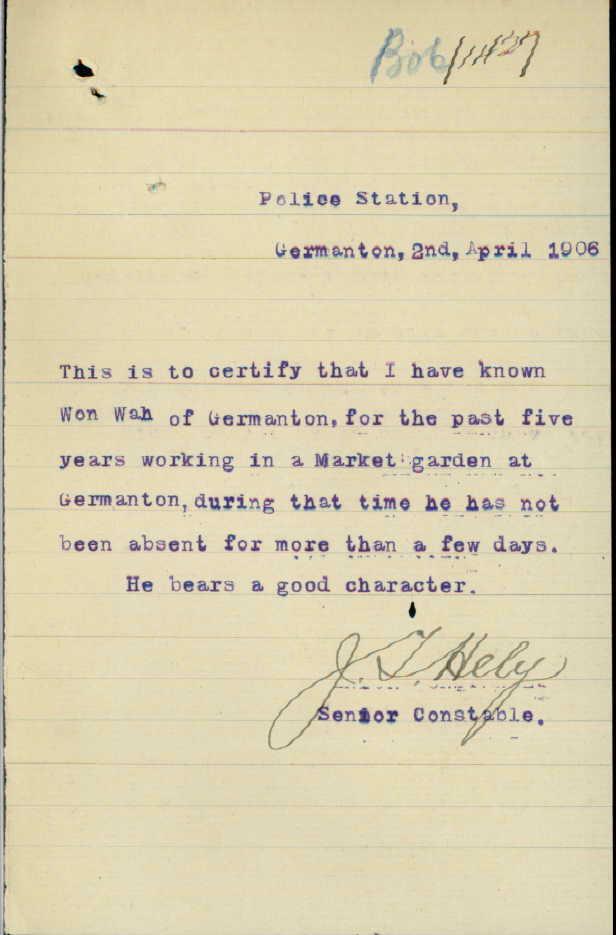 Bob
Police Station,
Germanton, 2nd, April 1906
This is to certify that I have known
Won Wah of Germanton, for the past five
years working in a Market garden at
Germanton, during that time he has not
been absent for more than a few days.
He bears a good character.
J. T. Hely
Senior Constable.